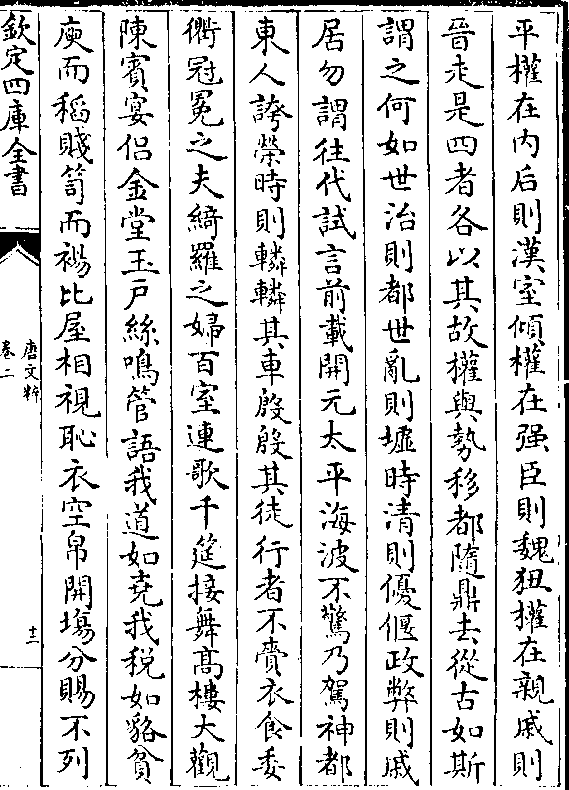 平權在內后則漢室傾權在强臣則魏狃權在親戚則
晉走是四者各以其故權與勢移都隨鼎去從古如斯
謂之何如世治則都世亂則墟時清則優偃政弊則戚
居勿謂往代試言前載開元太平海波不驚乃駕神都
東人誇榮時則轔轔其車殷殷其徒行者不賫衣食委
衢冠冕之夫綺羅之婦百室連歌千筵接舞髙樓大觀
陳賓宴侣金堂玉戸絲鳴管語我道如堯我税如貉貧
庾而稻賤笥而裼比屋相視恥衣空帛開場分賜不列
欽定四庫全書
唐文粹
卷二
十二